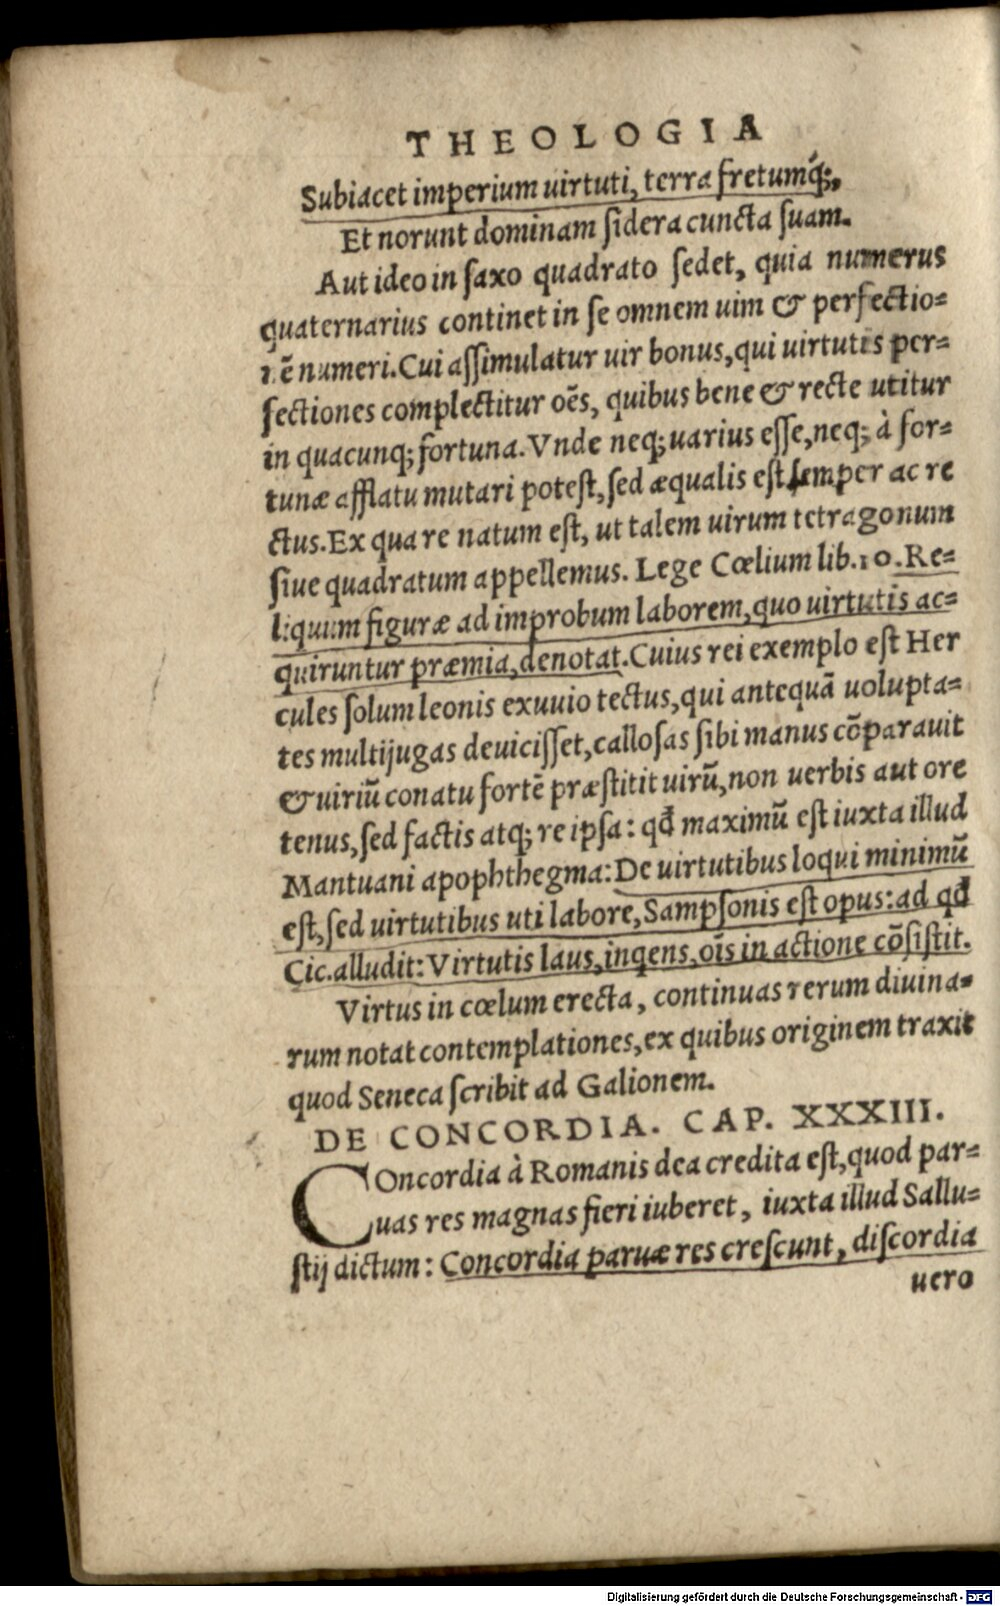 THEOLOGIA
Subiacet imperium uirtuti, terra fretumq́;,
Et norunt dominam ſidera cuncta ſuam.
Aut ideo in ſaxo quadrato ſedet, quia numerus
quaternarius continet in ſe omnem uim & perfectio=
nē numeri. Cui aſſimulatur uir bonus, qui uirtutis per=
fectiones complectitur oēs, quibus bene & recte utitur
in quacunq; fortuna. Vnde neq; uarius eſſe, neq; à for=
tunæ afflatu mutari poteſt, ſed æqualis eſt ſemper ac re
ctus. Ex qua re natum eſt, ut talem uirum tetragonum
ſiue quadratum appellemus. Lege Cœlium lib. 10. Re=
liquum figuræ ad improbum laborem, quo uirtutis ac=
quiruntur præmia, denotat. Cuius rei exemplo eſt Her
cules ſolum leonis exuuio tectus, qui antequā uolupta=
tes multijugas deuiciſſet, calloſas ſibi manus cōparauit
& uiriū conatu fortē præſtitit uirū, non uerbis aut ore
tenus, ſed factis atq; re ipſa: qđ maximū eſt iuxta illud
Mantuani apophthegma: De uirtutibus loqui minimū
eſt, ſed uirtutibus uti labore, Sampſonis eſt opus: ad qđ
Cic. alludit: Virtutis laus, ingens, oīs in actione cōſiſtit.
Virtus in cœlum erecta, continuas rerum diuina=
rum notat contemplationes, ex quibus originem traxit
quod Seneca ſcribit ad Galionem.
DE CONCORDIA. CAP. XXXIII.
COncordia à Romanis dea credita eſt, quod par=
uas res magnas fieri iuberet, iuxta illud Sallu=
ſtij dictum: Concordia paruæ res creſcunt, diſcordia
uero
Digitalisierung gefördert durch die Deutsche Forschungsgemeinschaft - DFG